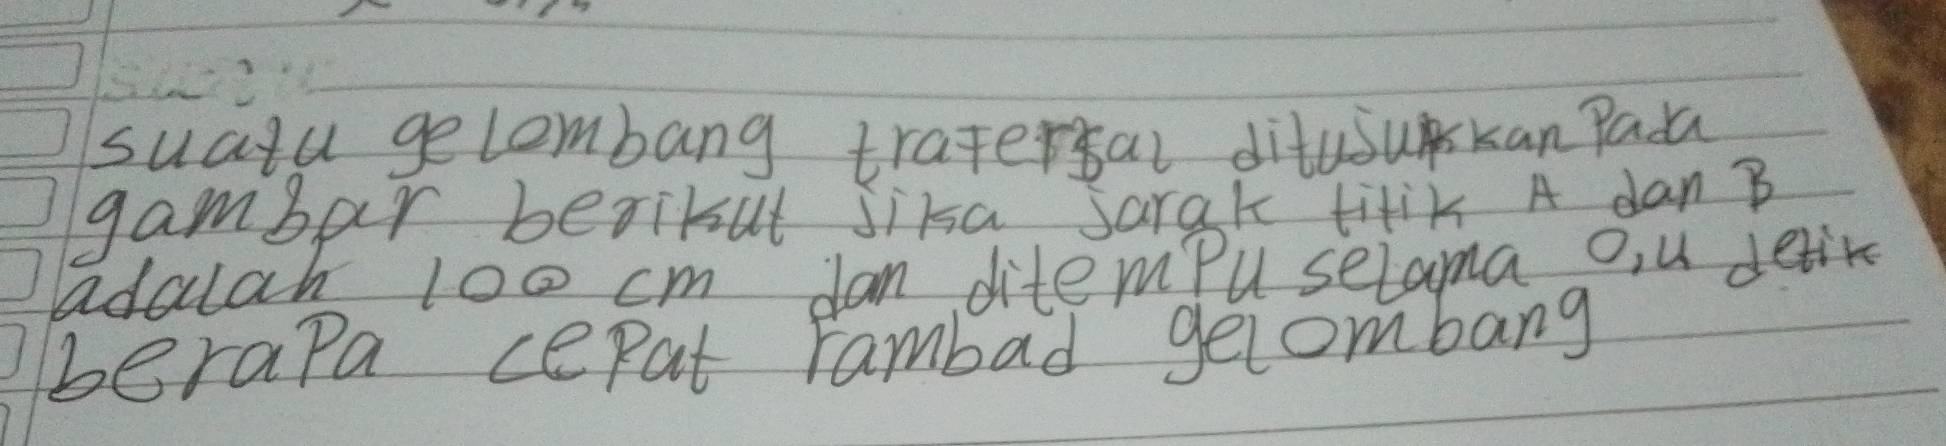 suatu gelombang traFersal ditujukkan Pada
gambar berikut jika jarak titik A dan B
adalah 100 cm dan ditemPu selama 0,4 detik
beraPa cePat rambad gelombang